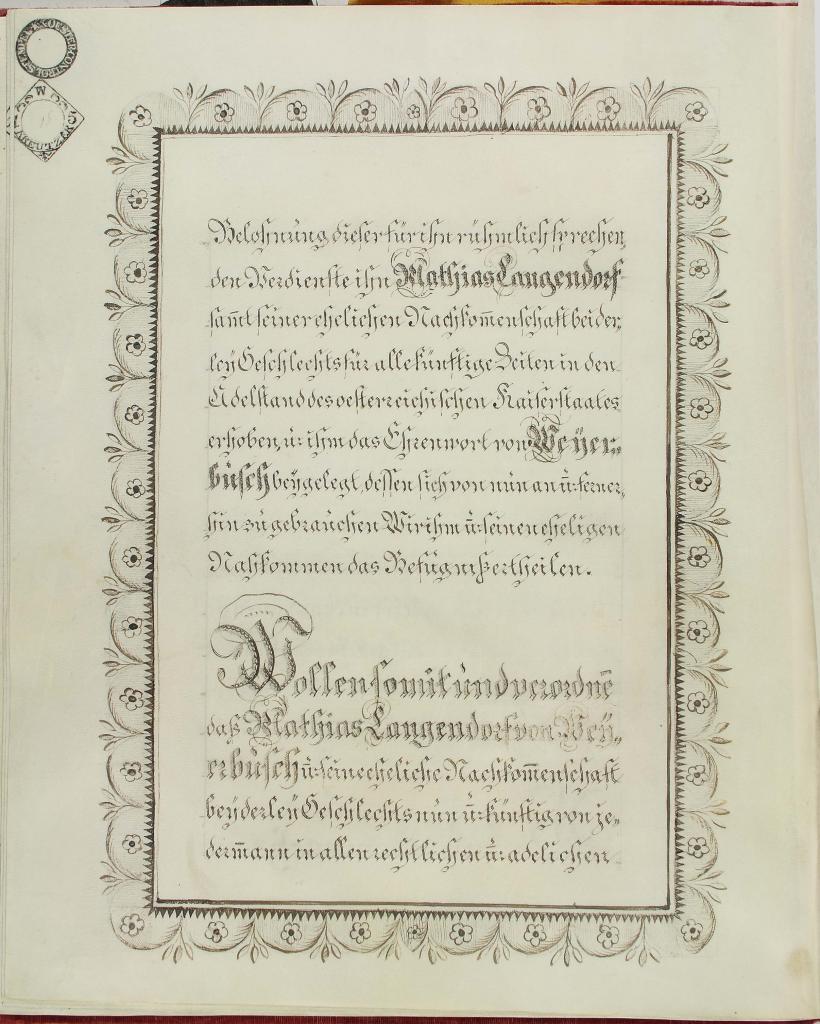 Belohnung dieser für ihn rühmlich sprechen,
den Verdienste ihn Mathias Langendorf
sam̅t seiner ehelichen Nachkom̅enschaft beider,
ley Geschlechts für alle künftige Zeiten in den
Adelstand des oesterreichischen Kaiserstaates
erhoben, u: ihm das Ehrenwort von Weyer„
busch beygelegt, dessen sich von nun an u: ferner,
hin zu gebrauchen Wir ihm u: seinen eheligen
Nahkommen das Befugniß ertheilen.
Wollen somit und verordne̅
daß Mathias Langendorf von Wey„
erbusch u: seine eheliche Nachkom̅enschaft
beyderley Geschlechts nun u: künftig von je„
derm̅ann in allen rechtlichen u: adelichen